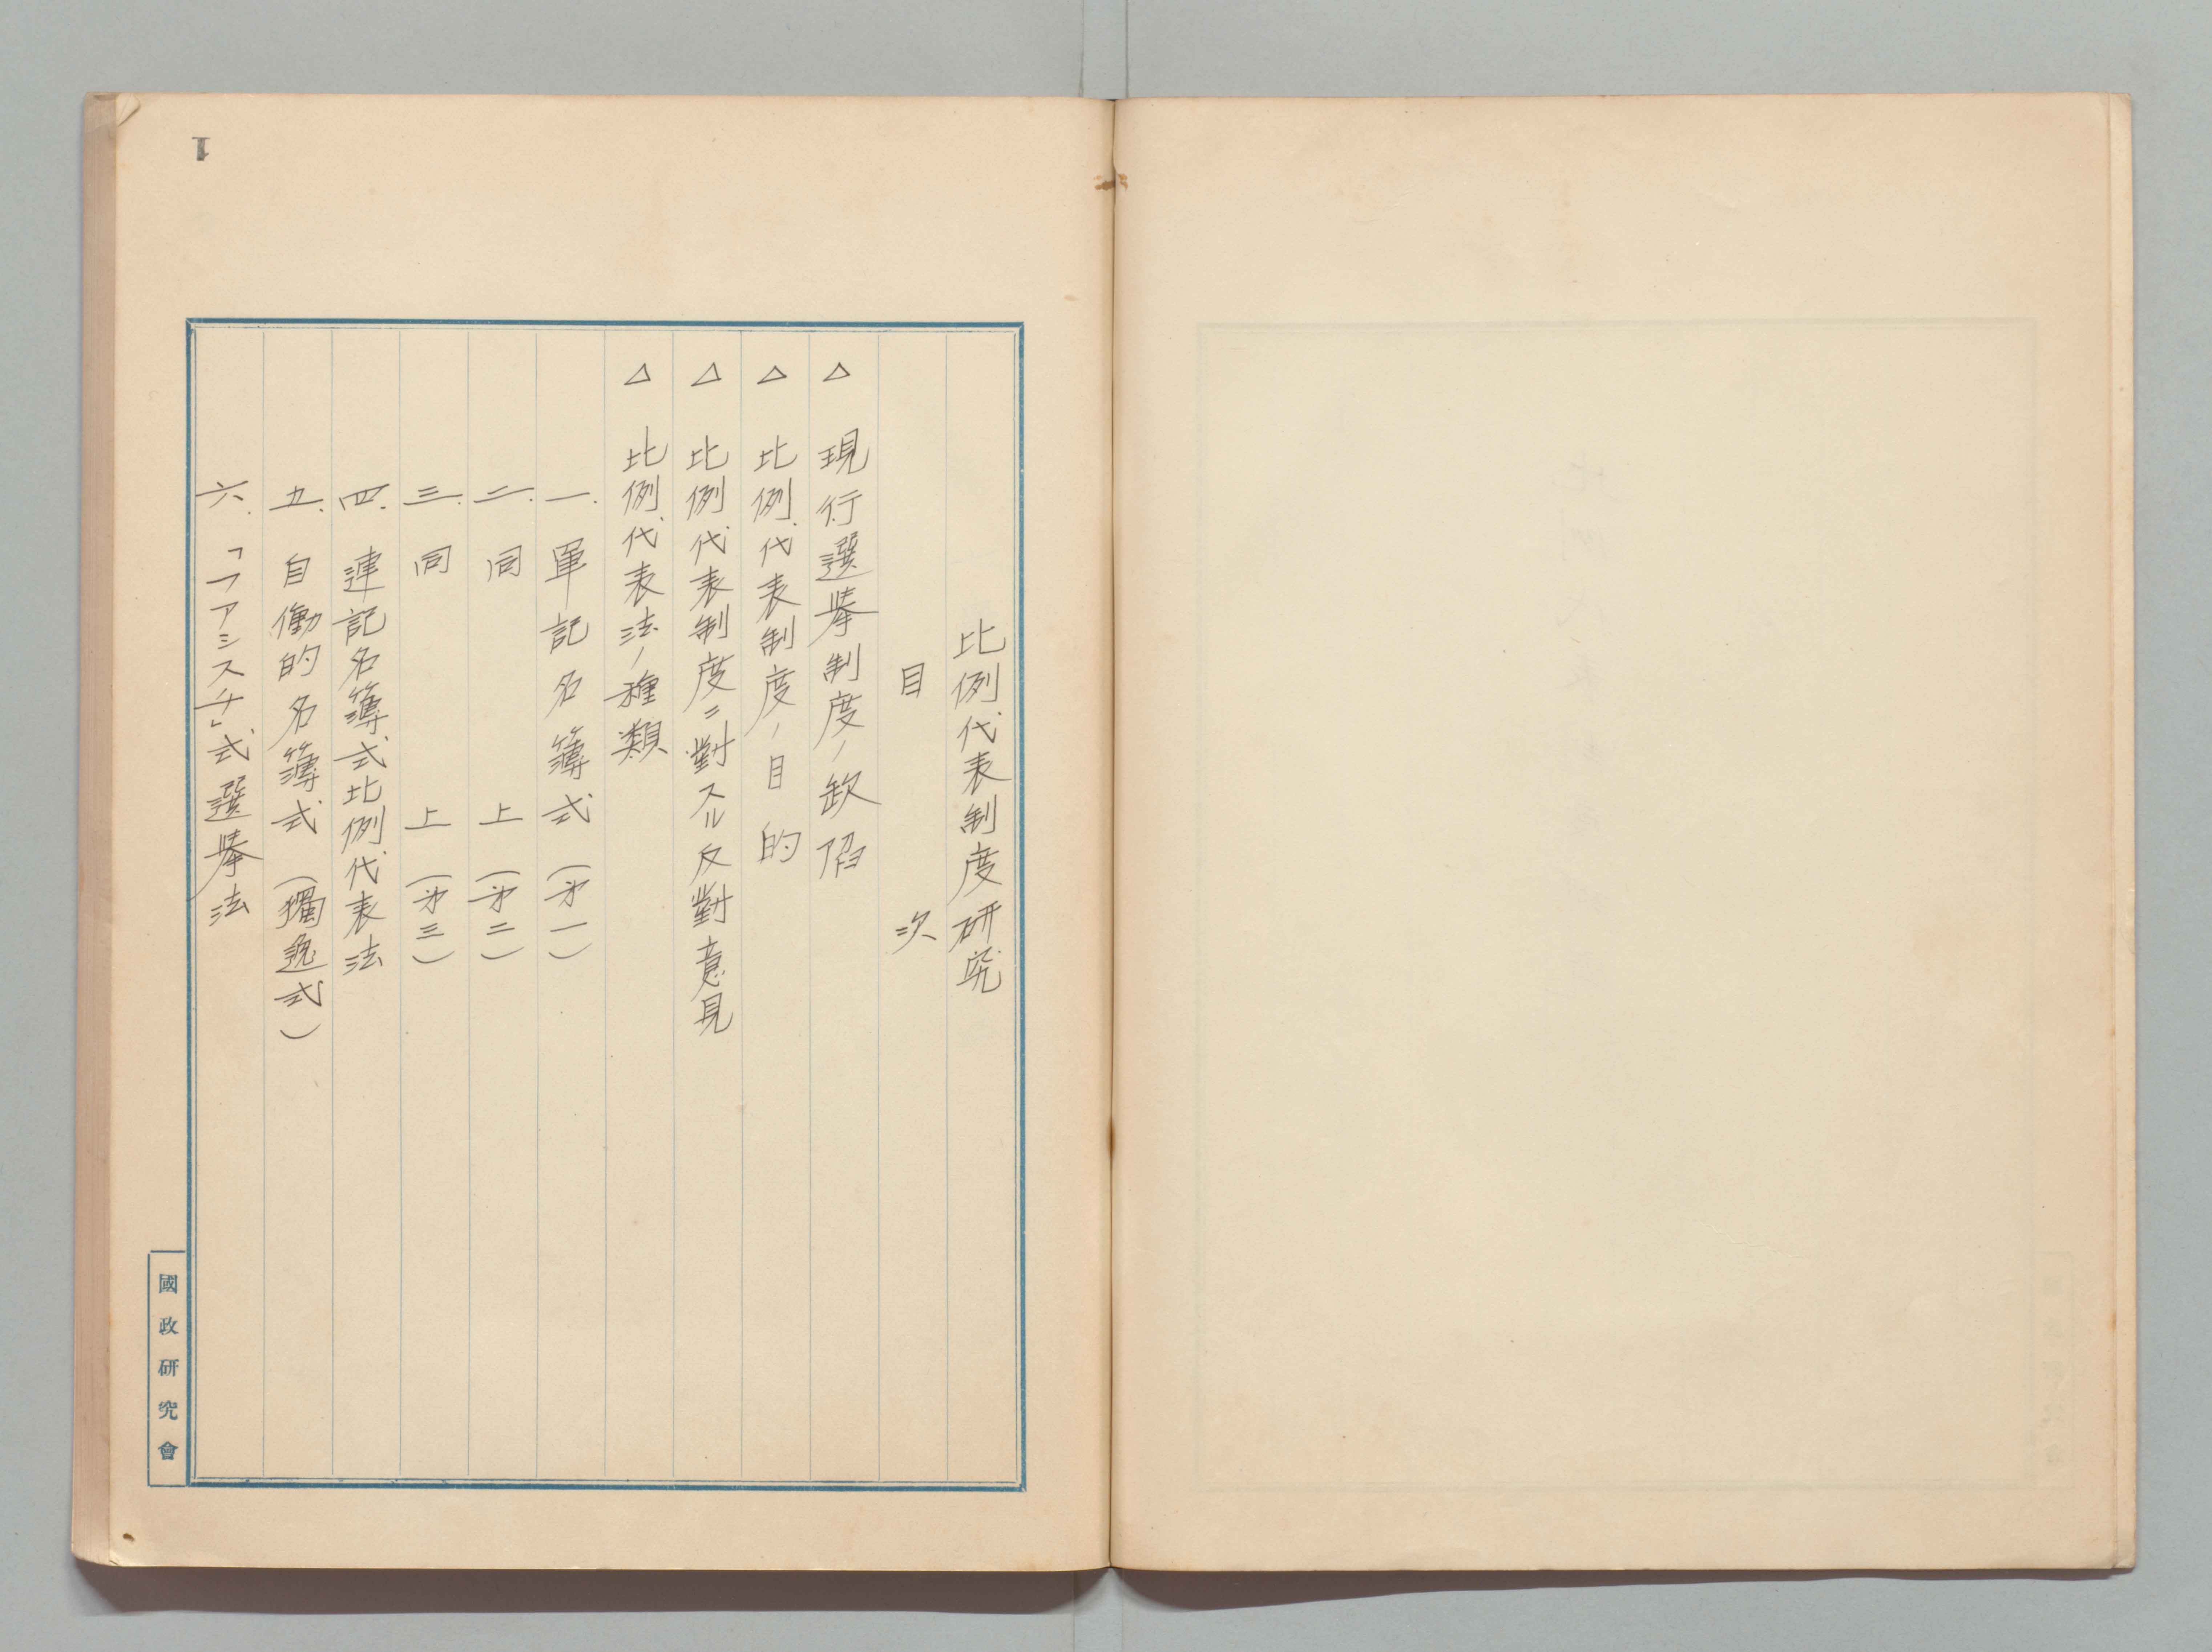 比例代表制度研究
目次
△ 現行選擧制度ノ缺陷
△ 比例代表制度ノ目的
△ 比例代表制度ニ對スル反對意見
△ 比例代表法ノ種類
一. 單記名簿式（第一）
二. 同上（第二）
三. 同上（第三）
四. 連記名簿式比例代表法
五. 自働的名簿式（獨逸式）
六. 「フアシスチ」式選擧法
國政研究會
1